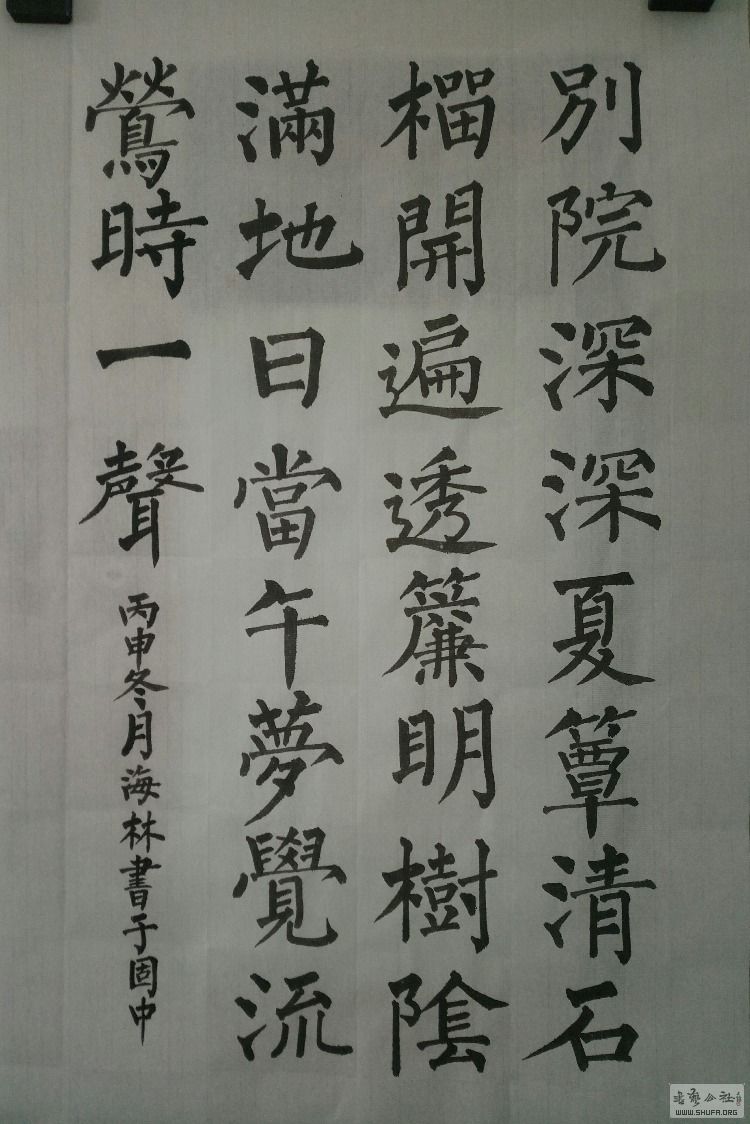 別院深深夏簟清石
榴開遍透簾明樹陰
滿地日當午夢覺流
鶯時一聲
丙申冬月海林書于固中
WWW.SHUFA.ORG